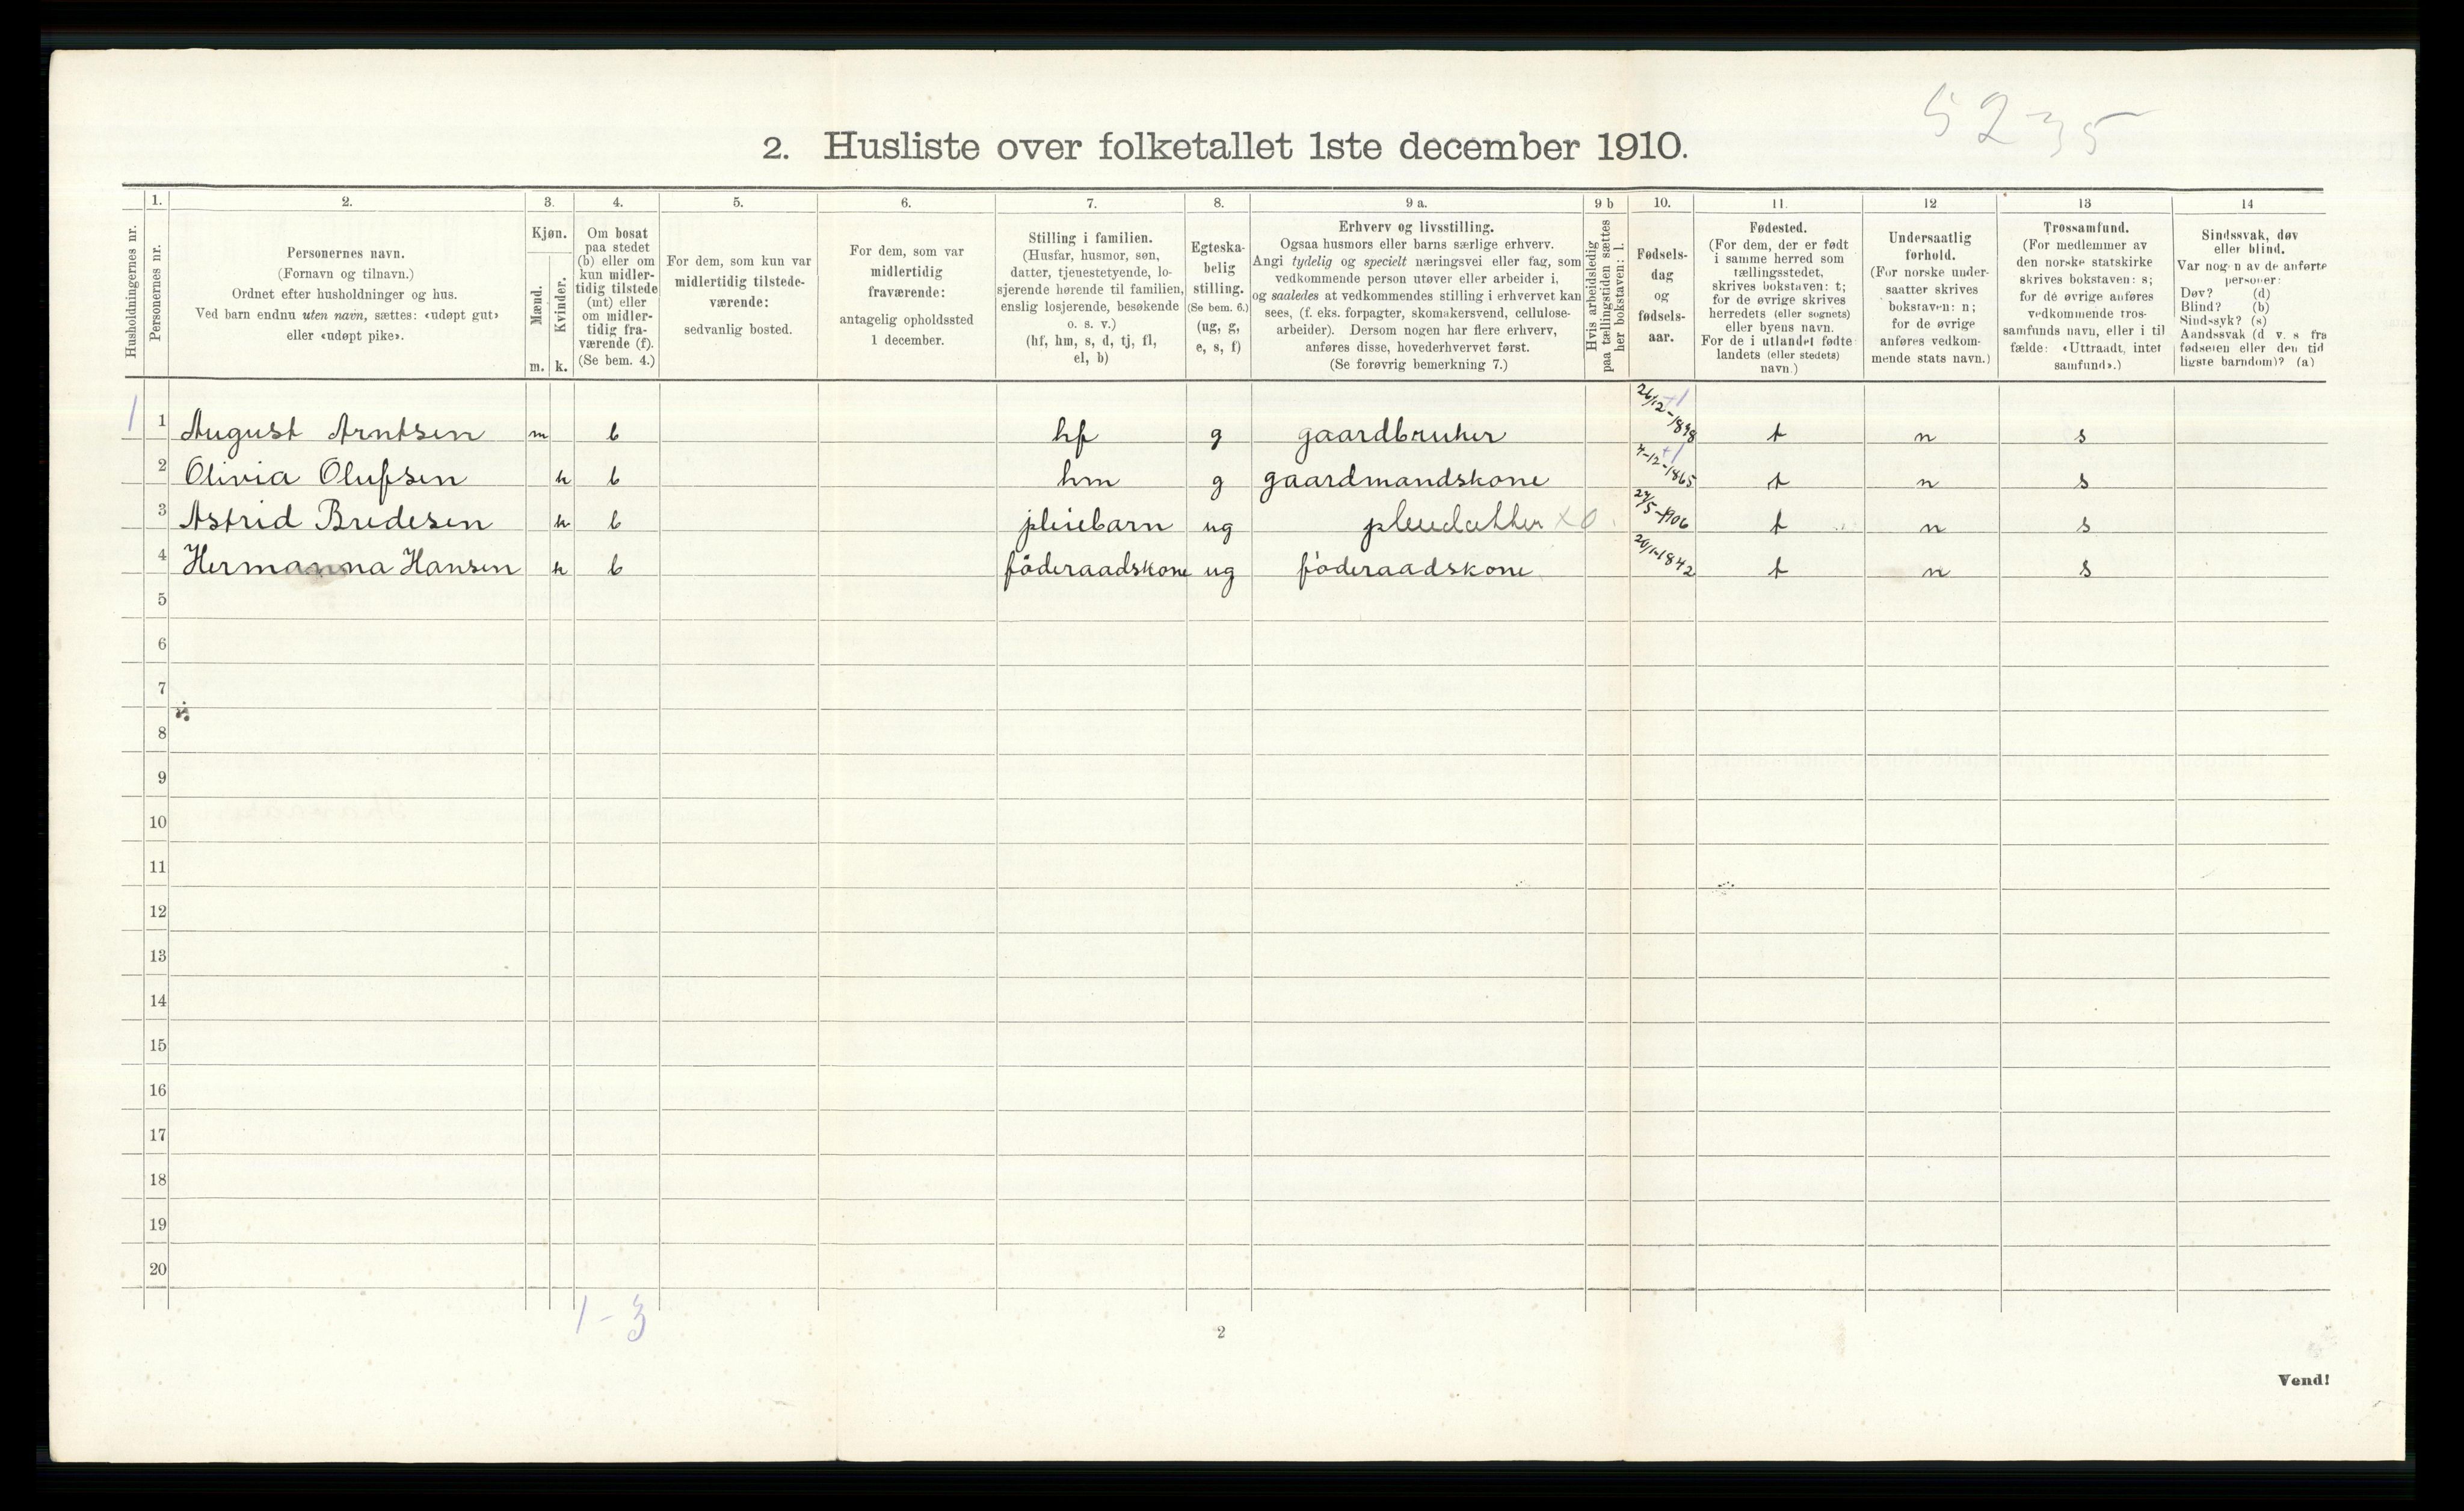 5235
2. Husliste over folketallet 1ste december 1910.
1. 2. 3. 4. 5. 6. 7. 8. 9 a. 9 b 10. 11. 12 13 14
Husholdningernes nr.
Personernes nr.
Personernes navn.
(Fornavn og tilnavn.)
Ordnet efter husholdninger og hus.
Ved barn endnu uten navn, sættes: «udøpt gut»
eller «udøpt pike».
Kjøn.
Mænd.
Kvinder.
m. k.
Om bosat
paa stedet
(b) eller om
kun midler-
tidig tilstede
(mt) eller
om midler-
tidig fra-
værende (f).
(Se bem. 4.)
For dem, som kun var
midlertidig tilstede-
værende:
sedvanlig bosted.
For dem, som var
midlertidig
fraværende:
antagelig opholdssted
1 december.
Stilling i familien.
(Husfar, husmor, søn,
datter, tjenestetyende, lo-
sjerende hørende til familien,
enslig losjerende, besøkende
o. s. v.)
(hf, hm, s, d, tj, fl,
el, b)
Egteska-
belig
stilling.
(Se bem. 6.)
(ug, g,
e, s, f)
Erhverv og livsstilling.
Ogsaa husmors eller barns særlige erhverv.
Angi tydelig og specielt næringsvei eller fag, som
vedkommende person utøver eller arbeider i,
og saaledes at vedkommendes stilling i erhvervet kan
sees, (f. eks. forpagter, skomakersvend, cellulose-
arbeider). Dersom nogen har flere erhverv,
anføres disse, hovederhvervet først.
(Se forøvrig bemerkning 7.)
Hvis arbeidsledig
paa tællingstiden sættes
her bokstaven: l.
Fødsels-
dag
og
fødsels-
aar.
Fødested.
(For dem, der er født
i samme herred som
tællingsstedet,
skrives bokstaven: t;
for de øvrige skrives
herredets (eller sognets)
eller byens navn.
For de i utlandet fødte
landets (eller stedets)
navn.)
Undersaatlig
forhold.
(For norske under-
saatter skrives
bokstaven: n;
for de øvrige
anføres vedkom-
mende stats navn.)
Trossamfund.
(For medlemmer av
den norske statskirke
skrives bokstaven: s;
for de øvrige anføres
vedkommende tros-
samfunds navn, eller i til
fælde: «Uttraadt, intet
samfund».)
Sindssvak, døv
eller blind.
Var nogen av de anførte
personer:
Døv? (d)
Blind? (b)
Sindssyk? (s)
Aandssvak (d v. s fra
fødselen eller den tid
ligste barndom)? (a)
1 1 August Arntsen m b hf g gaardbruker t n s
2 Olivia Olufsen k b hm g gaardmandskone 7-12-1865 t n s
3 Astrid Bredesen k b pleiebarn ug pleiedatter x0 27/5-1906 t n s
4 Hermanna Hansen k b föderaadskone ug föderaadskone 20/1-1842 t n s
5
6
7
8
9
10
11
12
13
14
15
16
17
18
19
20
1-3
2
Vend!